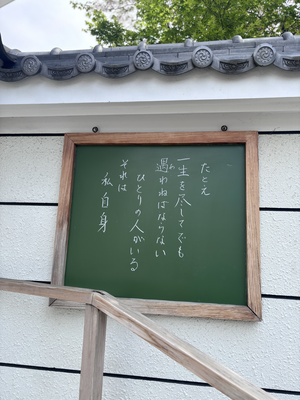 たとえ
一生を尽してでも
遇わねばならない
ひとりの人がいる
それは
私自身